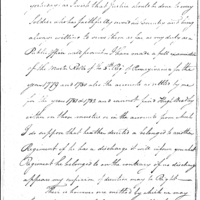 yesterday as I wish that Justice should be done to every
Soldier who has faithfully served his Country and being
always willing to serve them as far as my duty as a
Public officer will permit I have made a full examination
of the Muster Rolls of the 5th Regt of Pennsylvania for the
years 1779 and 1780 also the accounts as settled by me
for the years 1781 & 1783 and cannot find Hugh
either on those musters or in the accounts from which
I do suppose that he either deserted or belonged to another
Regiment if he has a discharge it will shew what
Regiment he belonged to on the contrary if no discharge
appears my suspicion of desertion may be Right
There is however one method by which we may